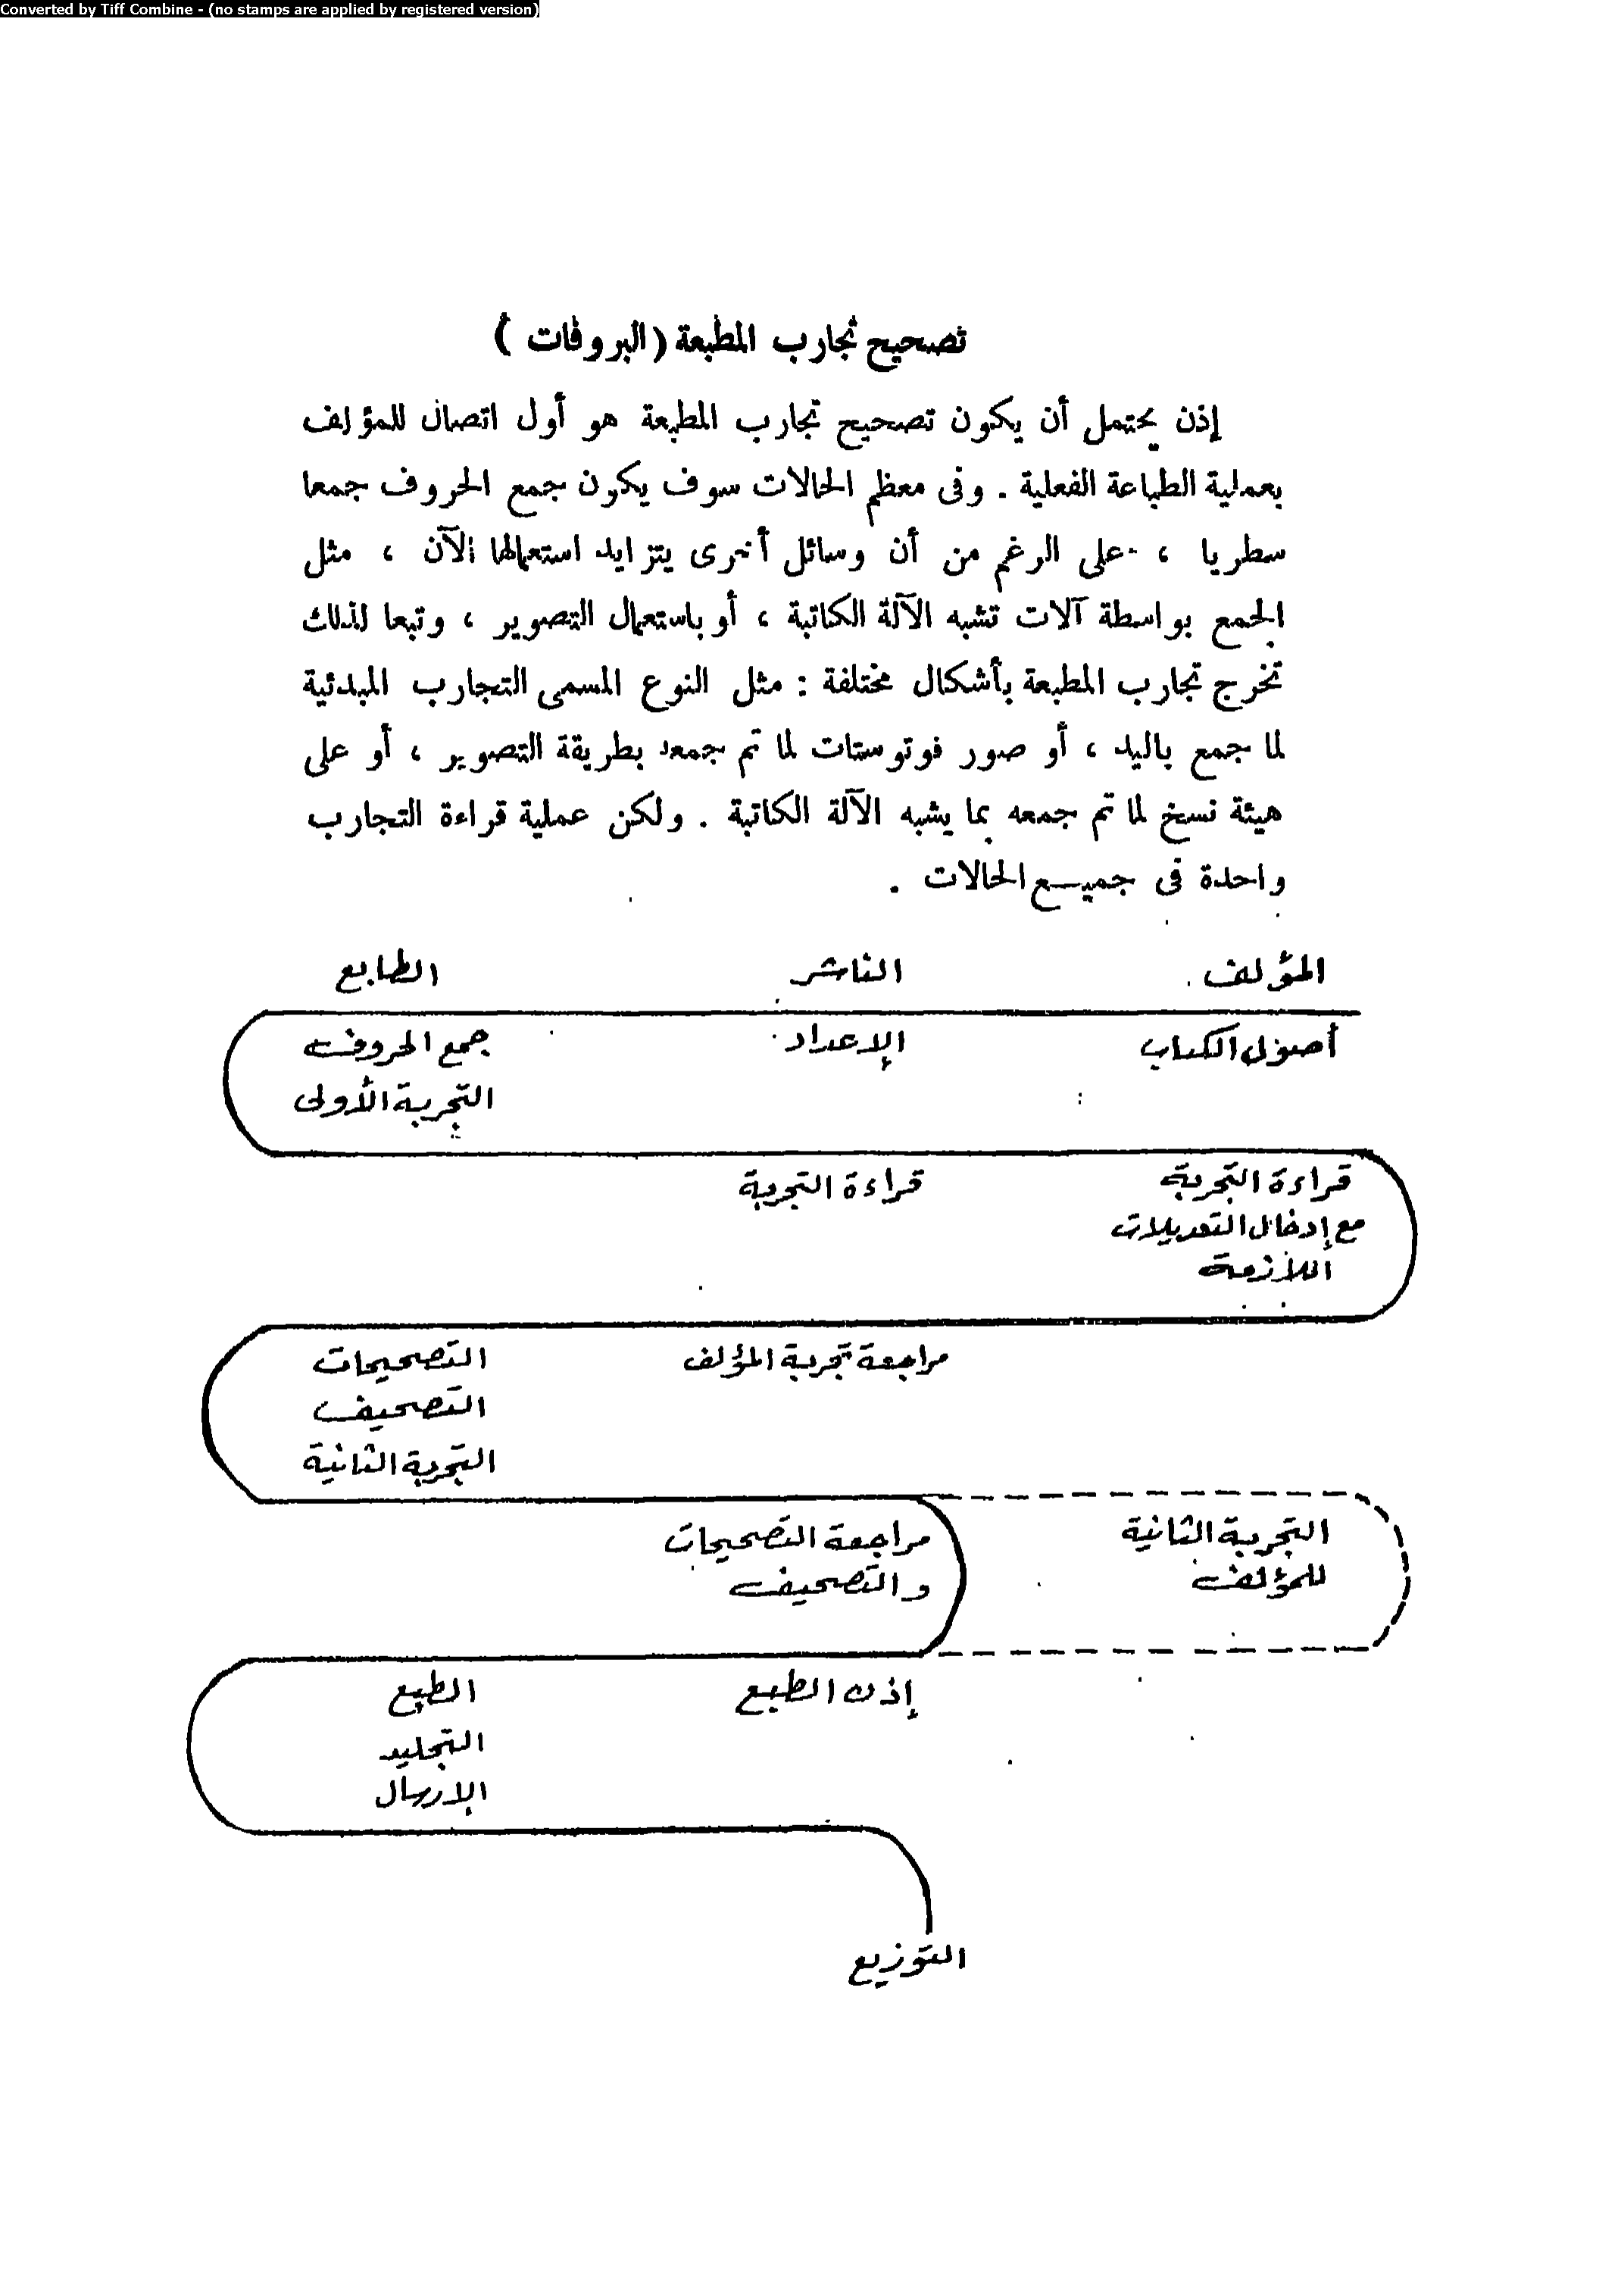 Converted by Tiff Combine - (no stamps are applied by registered version)
تصحيح تجارب المطبعة (البروفات)
إذن يحتمل أن يكون تصحيح تجارب المطبعة هو أول اتصال للمؤلف
بعملية الطباعة الفعلية . وفى معظم الحالات سوف يكون جمع الحروف جمعا
سطريا ، على الرغم من أن وسائل أخرى يتزايد استعمالها الآن ، مثل
الجمع بواسطة آلات تشبه الآلة الكاتبة ، أو باستعمال التصوير ، وتبعا لذلك
تخرج تجارب المطبعة بأشكال مختلفة : مثل النوع المسمى التجارب المبدئية
لما جمع باليد ، أو صور فوتوستات لما تم جمعه بطريقة التصوير ، أو على
هيئة نسخ لما تم جمعه بما يشبه الآلة الكاتبة . ولكن عملية قراءة التجارب
واحدة فى جميع الحالات .
المؤلف الناشر الطابع
أصول الكتاب الإعداد جمع الحروف
التجربة الأولى
قراءة التجربة قراءة التجربة
مع إدخال التعديلات
اللازمة
مراجعة تجربة المؤلف التصحيحات
التصحيف
التجربة الثانية
التجربة الثانية مراجعة التصحيحات
للمؤلف والتصحيف
إذن الطبع الطبع
التجليد
الإرسال
التوزيع